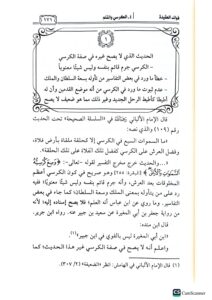 فوائد العقيدة
أ. الكرسي والقلم
١٢٦
١
الحديث الذي لا يصح غيره في صفة الكرسي
- الكرسي جرم قائم بنفسه وليس شيئًا معنويًّا
- خطأ ما ورد في بعض التفاسير من تأوله بسعة السلطان والملك
- عدم ثبوت ما ورد في الكرسي من أنه موضع القدمين وأن له
أطيطًا كأطيط الرحل الجديد وغير ذلك مما هو ضعيف لا يصح
قال الإمام الألباني في السلسلة الصحيحة تحت الحديث
رقم (١٠٩) والذي نصه:
«ما السموات السبع في الكرسي إلا كحلقة ملقاة بأرض فلاة،
وفضل العرش على الكرسي كفضل تلك الفلاة على تلك الحلقة».
والحديث خرج مخرج التفسير لقوله -تعالى-: ﴿وَسِعَ كُرْسِيُّهُ
السَّمَوَاتِ وَالْأَرْضَ﴾ [البقرة: ٢٥٥] وهو صريح في كون الكرسي أعظم
المخلوقات بعد العرش، وأنه جرم قائم بنفسه وليس شيئًا معنويًّا. ففيه
رد على من يتأوله بمعنى الملك وسعة السلطان؛ كما جاء في بعض
التفاسير. وما روي عن ابن عباس أنه العلم؛ فلا يصح إسناده إليه؛ لأنه
من رواية جعفر بن أبي المغيرة عن سعيد بن جبير عنه.
قال ابن منده:
«ابن أبي المغيرة ليس بالقوي في ابن جبير»(١)
واعلم أنه لا يصح في صفة الكرسي غير هذا الحديث؛ كما
(١) قال الإمام الألباني في الهامش: انظر «الضعيفة» (٢/ ٣٠٧).
CS CamScanner